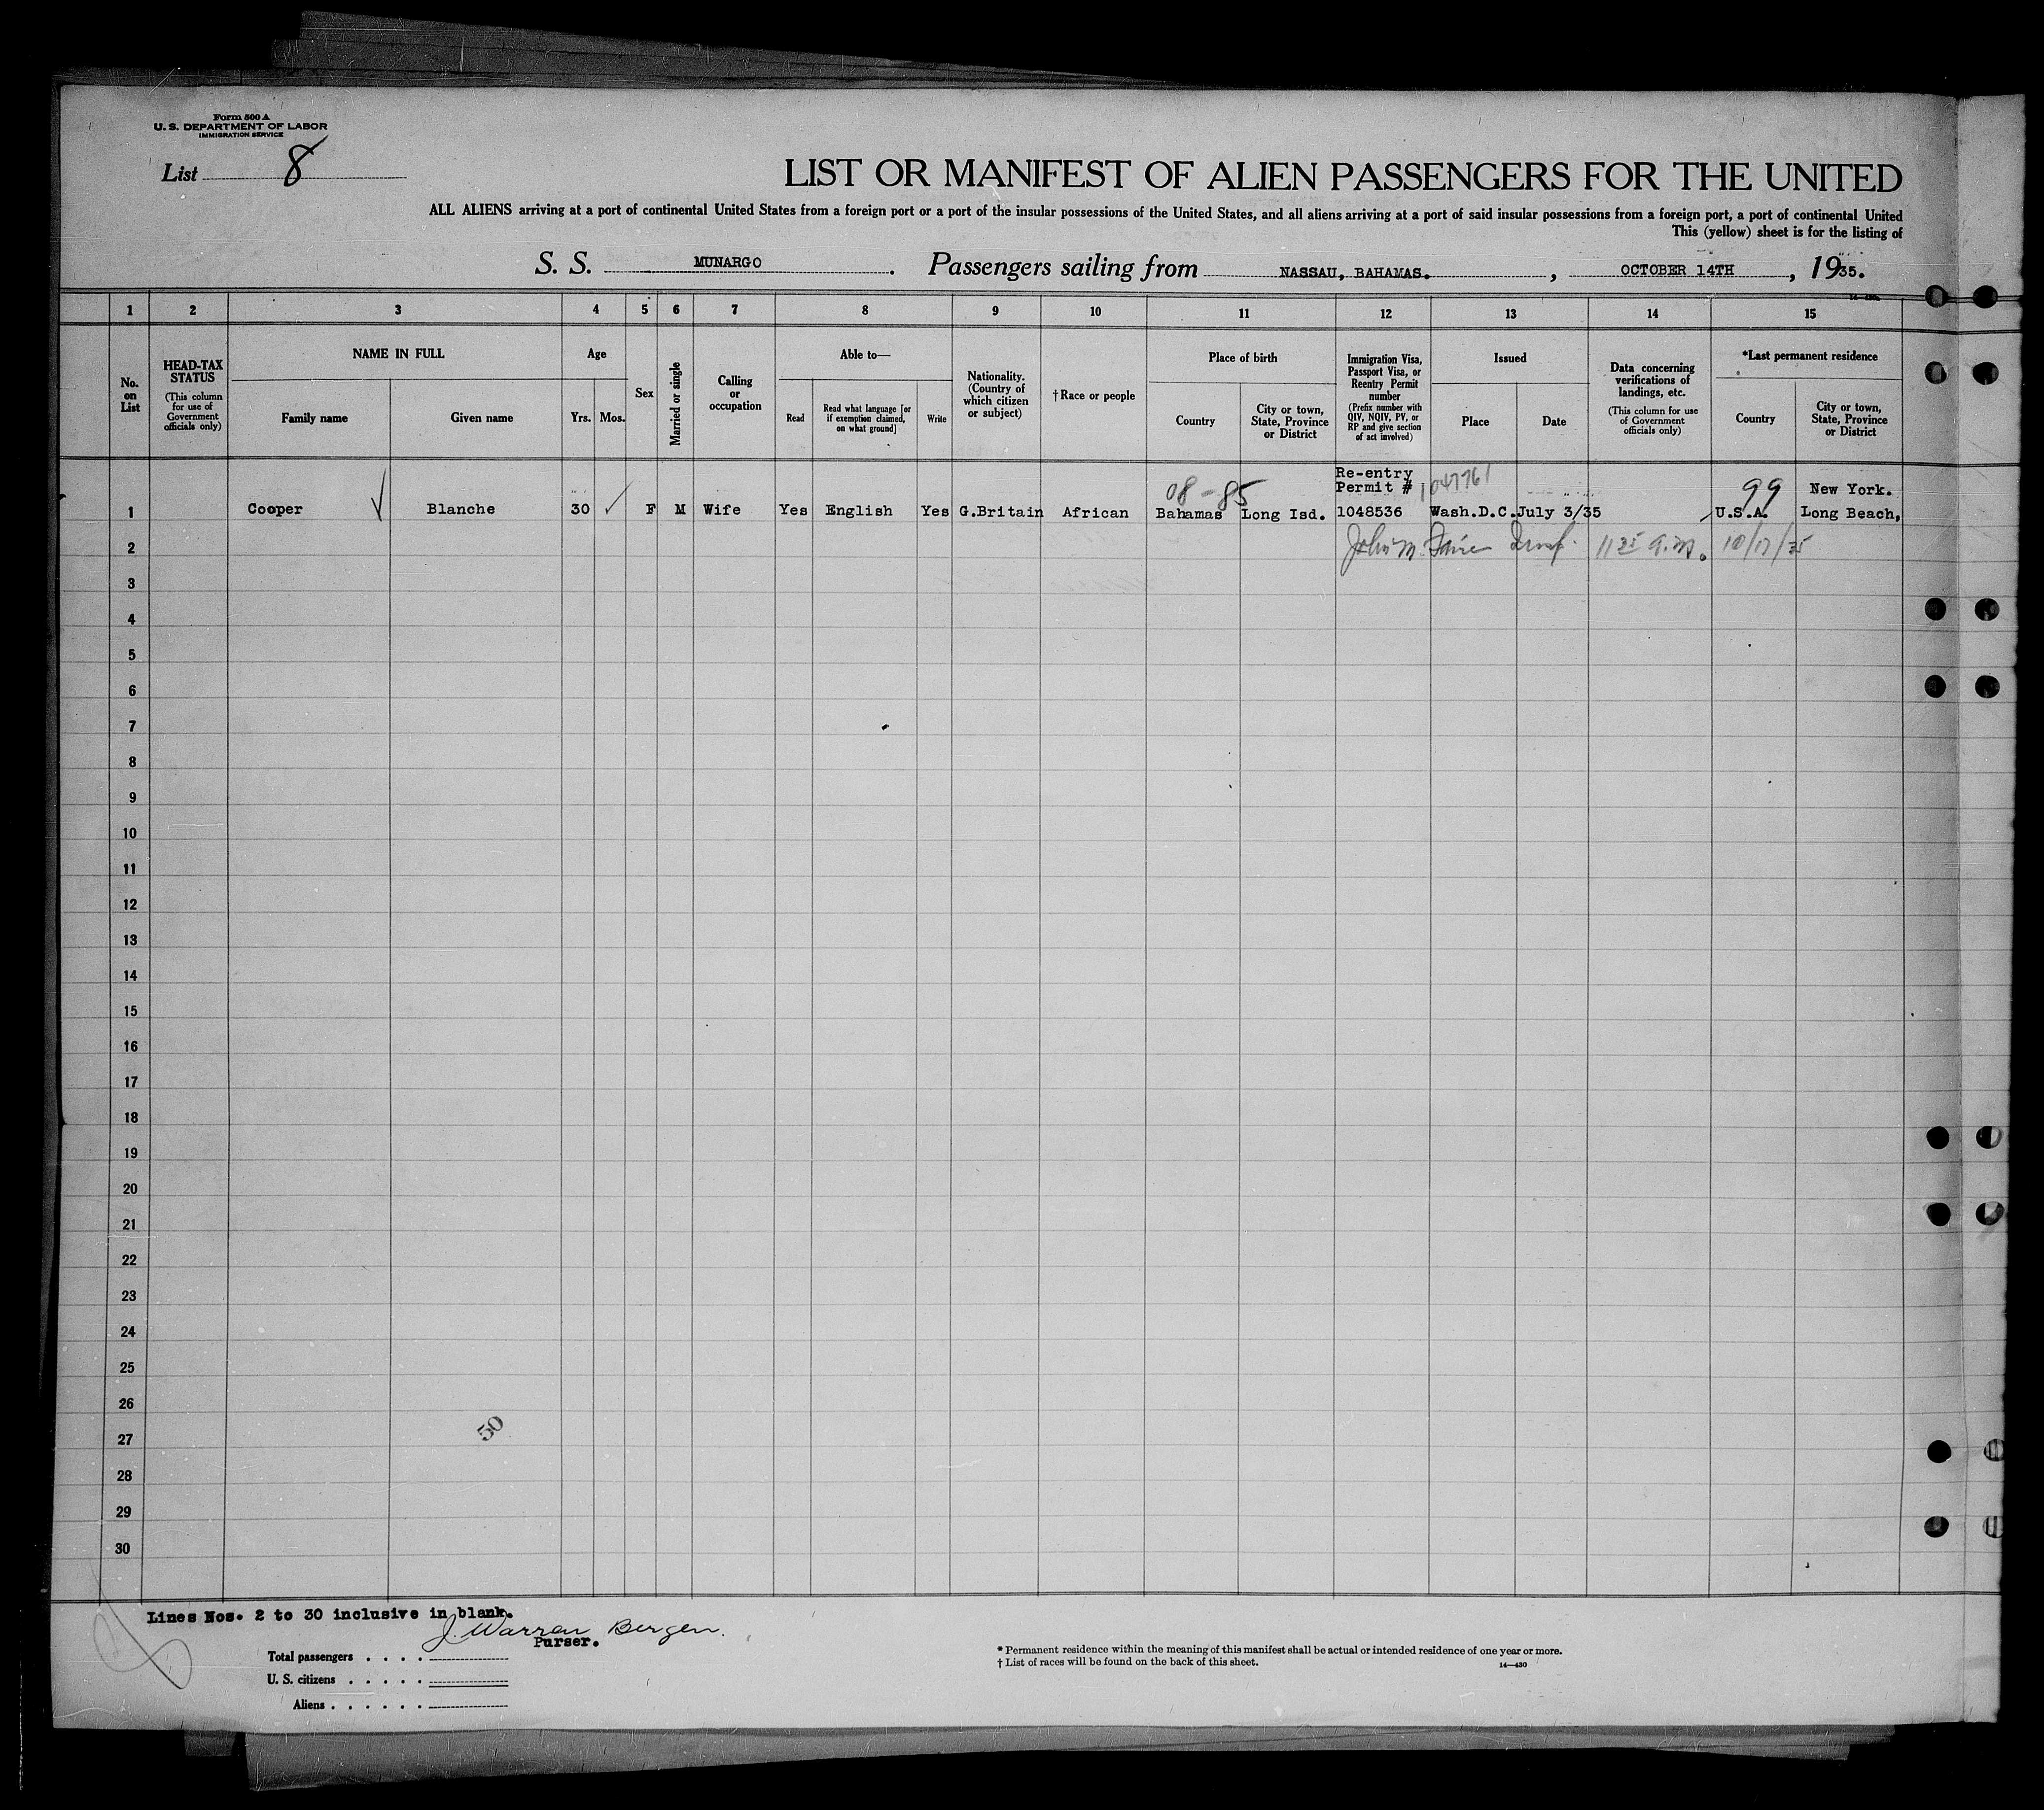 Form 500 A
U. S. DEPARTMENT OF LABOR
IMMIGRATION SERVICE
List 8
LIST OR MANIFEST OF ALIEN PASSENGERS FOR THE UNITED
ALL ALIENS arriving at a port of continental United States from a foreign port or a port of the insular possessions of the United States, and all aliens arriving at a port of said insular possessions from a foreign port, a port of continental United
This (yellow) sheet is for the listing of
S. S. MUNARGO. Passengers sailing from NASSAU, BAHAMAS., OCTOBER 14TH, 1935.
14-430
1 2 3 4 5 6 7 8 9 10 11 12 13 14 15
No. on List
HEAD-TAX STATUS
(This column for use of Government officials only)
NAME IN FULL
Family name
Given name
Age
Yrs.
Mos.
Sex
Married or single
Calling or occupation
Able to—
Read
Read what language [or if exemption claimed, on what ground]
Write
Nationality. (Country of which citizen or subject)
†Race or people
Place of birth
Country
City or town, State, Province or District
Immigration Visa, Passport Visa, or Reentry Permit number
(Prefix number with QIV, NQIV, PV, or RP and give section of act involved)
Issued
Place
Date
Data concerning verifications of landings, etc.
(This column for use of Government officials only)
*Last permanent residence
Country
City or town, State, Province or District
Re-entry
Permit # 1047761
08-85
99
New York.
1 Cooper Blanche 30 F M Wife Yes English Yes G.Britain African Bahamas Long Isd. 1048536 Wash.D.C. July 3/35 U.S.A. Long Beach,
2 John M. 11 25 a.m. 10/17/35
3
4
5
6
7
8
9
10
11
12
13
14
15
16
17
18
19
20
21
22
23
24
25
26
27
28
29
30
50
Lines Nos. 2 to 30 inclusive in blank.
J. Warren Bergen.
Purser.
Total passengers
U. S. citizens
Aliens
* Permanent residence within the meaning of this manifest shall be actual or intended residence of one year or more.
† List of races will be found on the back of this sheet.
14—430